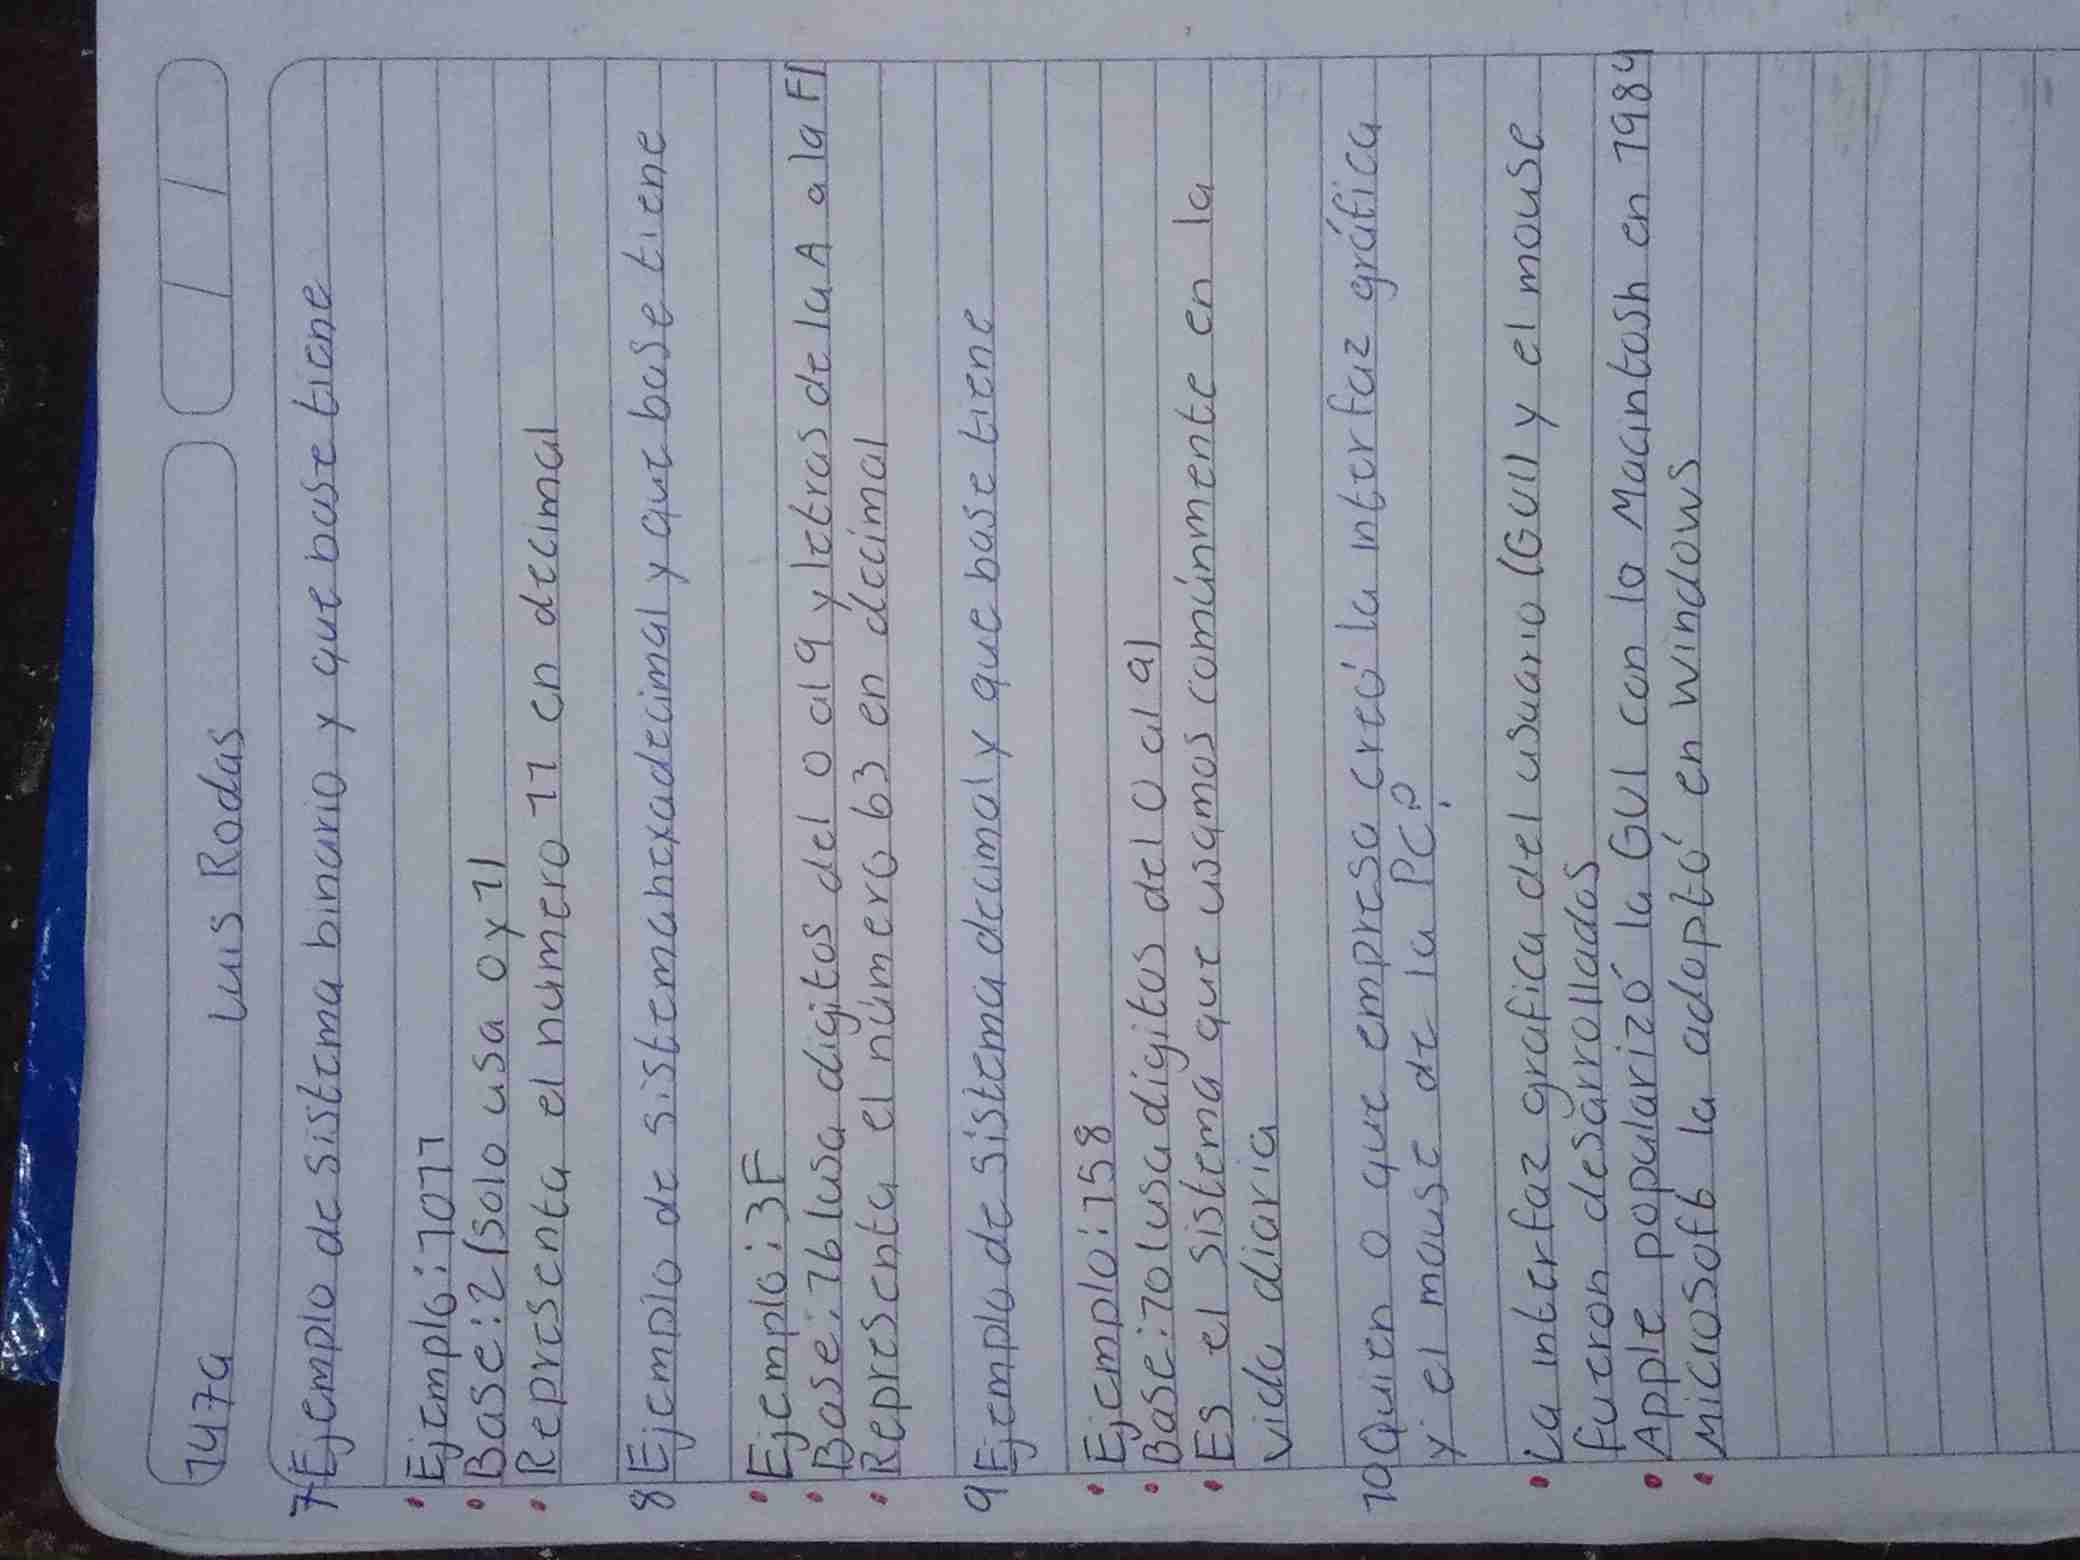 1479
Luis Rodas
7 Ejemplo de sistema binario y que base tiene
• Ejemplo: 1011
• Base: 2 (solo usa 0 y 1)
• Representa el número 11 en decimal
8 Ejemplo de sistemahexadecimal y que base tiene
• Ejemplo: 3F
• Base: 16 (usa digitos del 0 al 9 y letras de la A a la F)
• Representa el número 63 en décimal
9 Ejemplo de sistema decimal y que base tiene
• Ejemplo: 158
• Base: 10 (usa digitos del 0 al 9)
• Es el sistema que usamos comúnmente en la
vida diaria
10 Quien o que empresa creó la interfaz gráfica
y el mouse de la PC?
• La interfaz grafica del usuario (GUI) y el mouse
fueron desarrollados
• Apple popularizó la GUI con la Macintosh en 1984
• Microsoft la adoptó en Windows